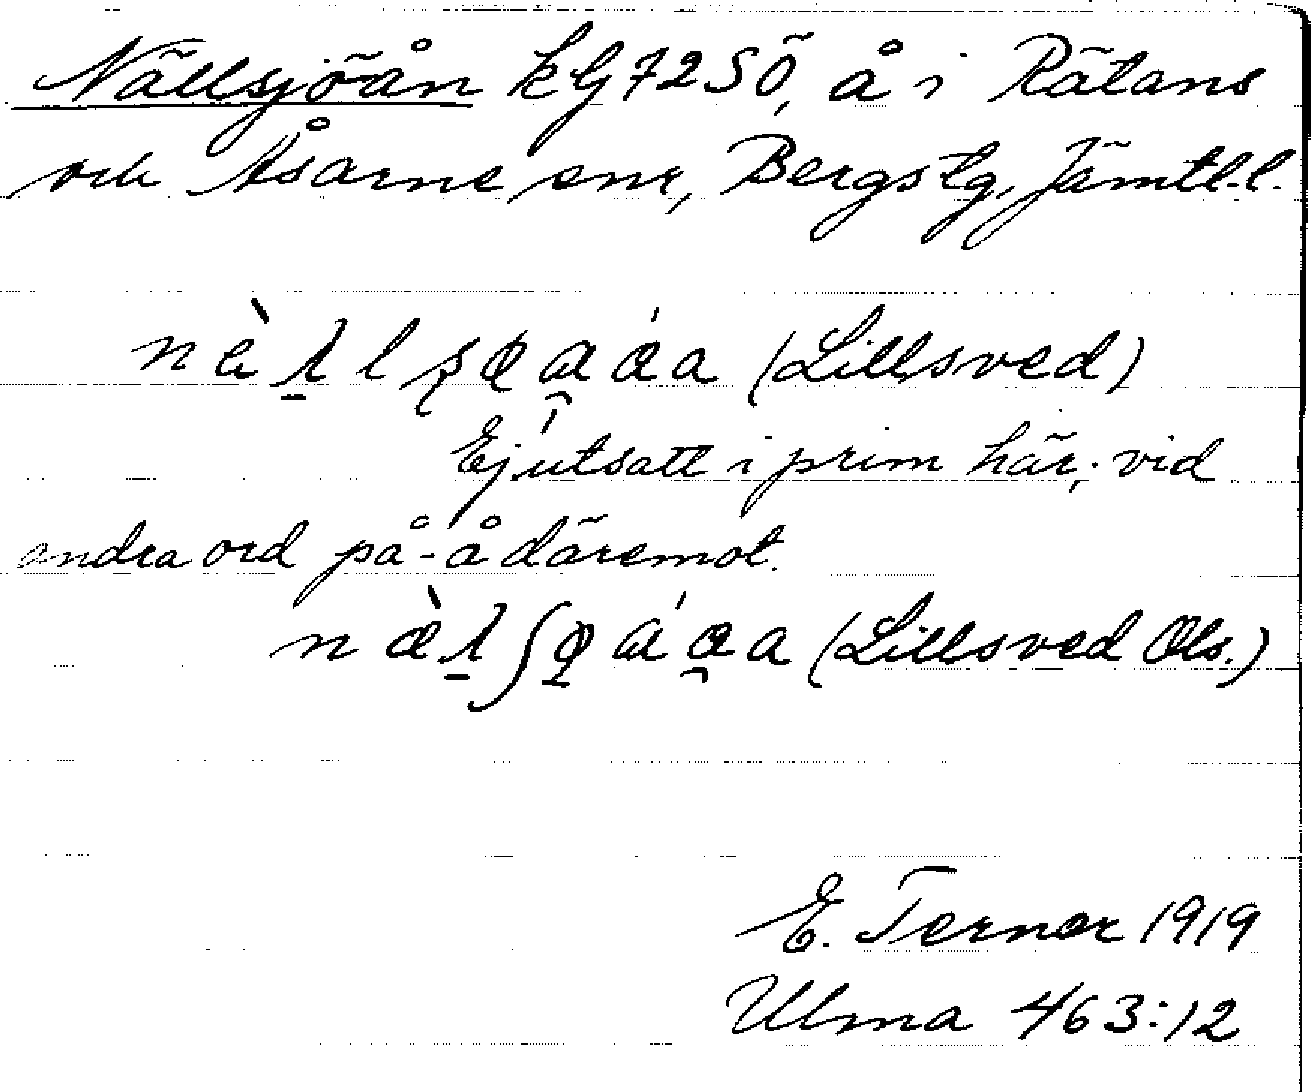 Nällsjöån kbl 72 SÖ, å i Rätans
och Åsarne snr, Bergs tg, Jämtl.l.
(Lillsved)
Ej utsatt i prim här, vid
andra ord på -å däremot.
(Lillsved Ols.)
E. Ternor 1919
Ulma 463:12